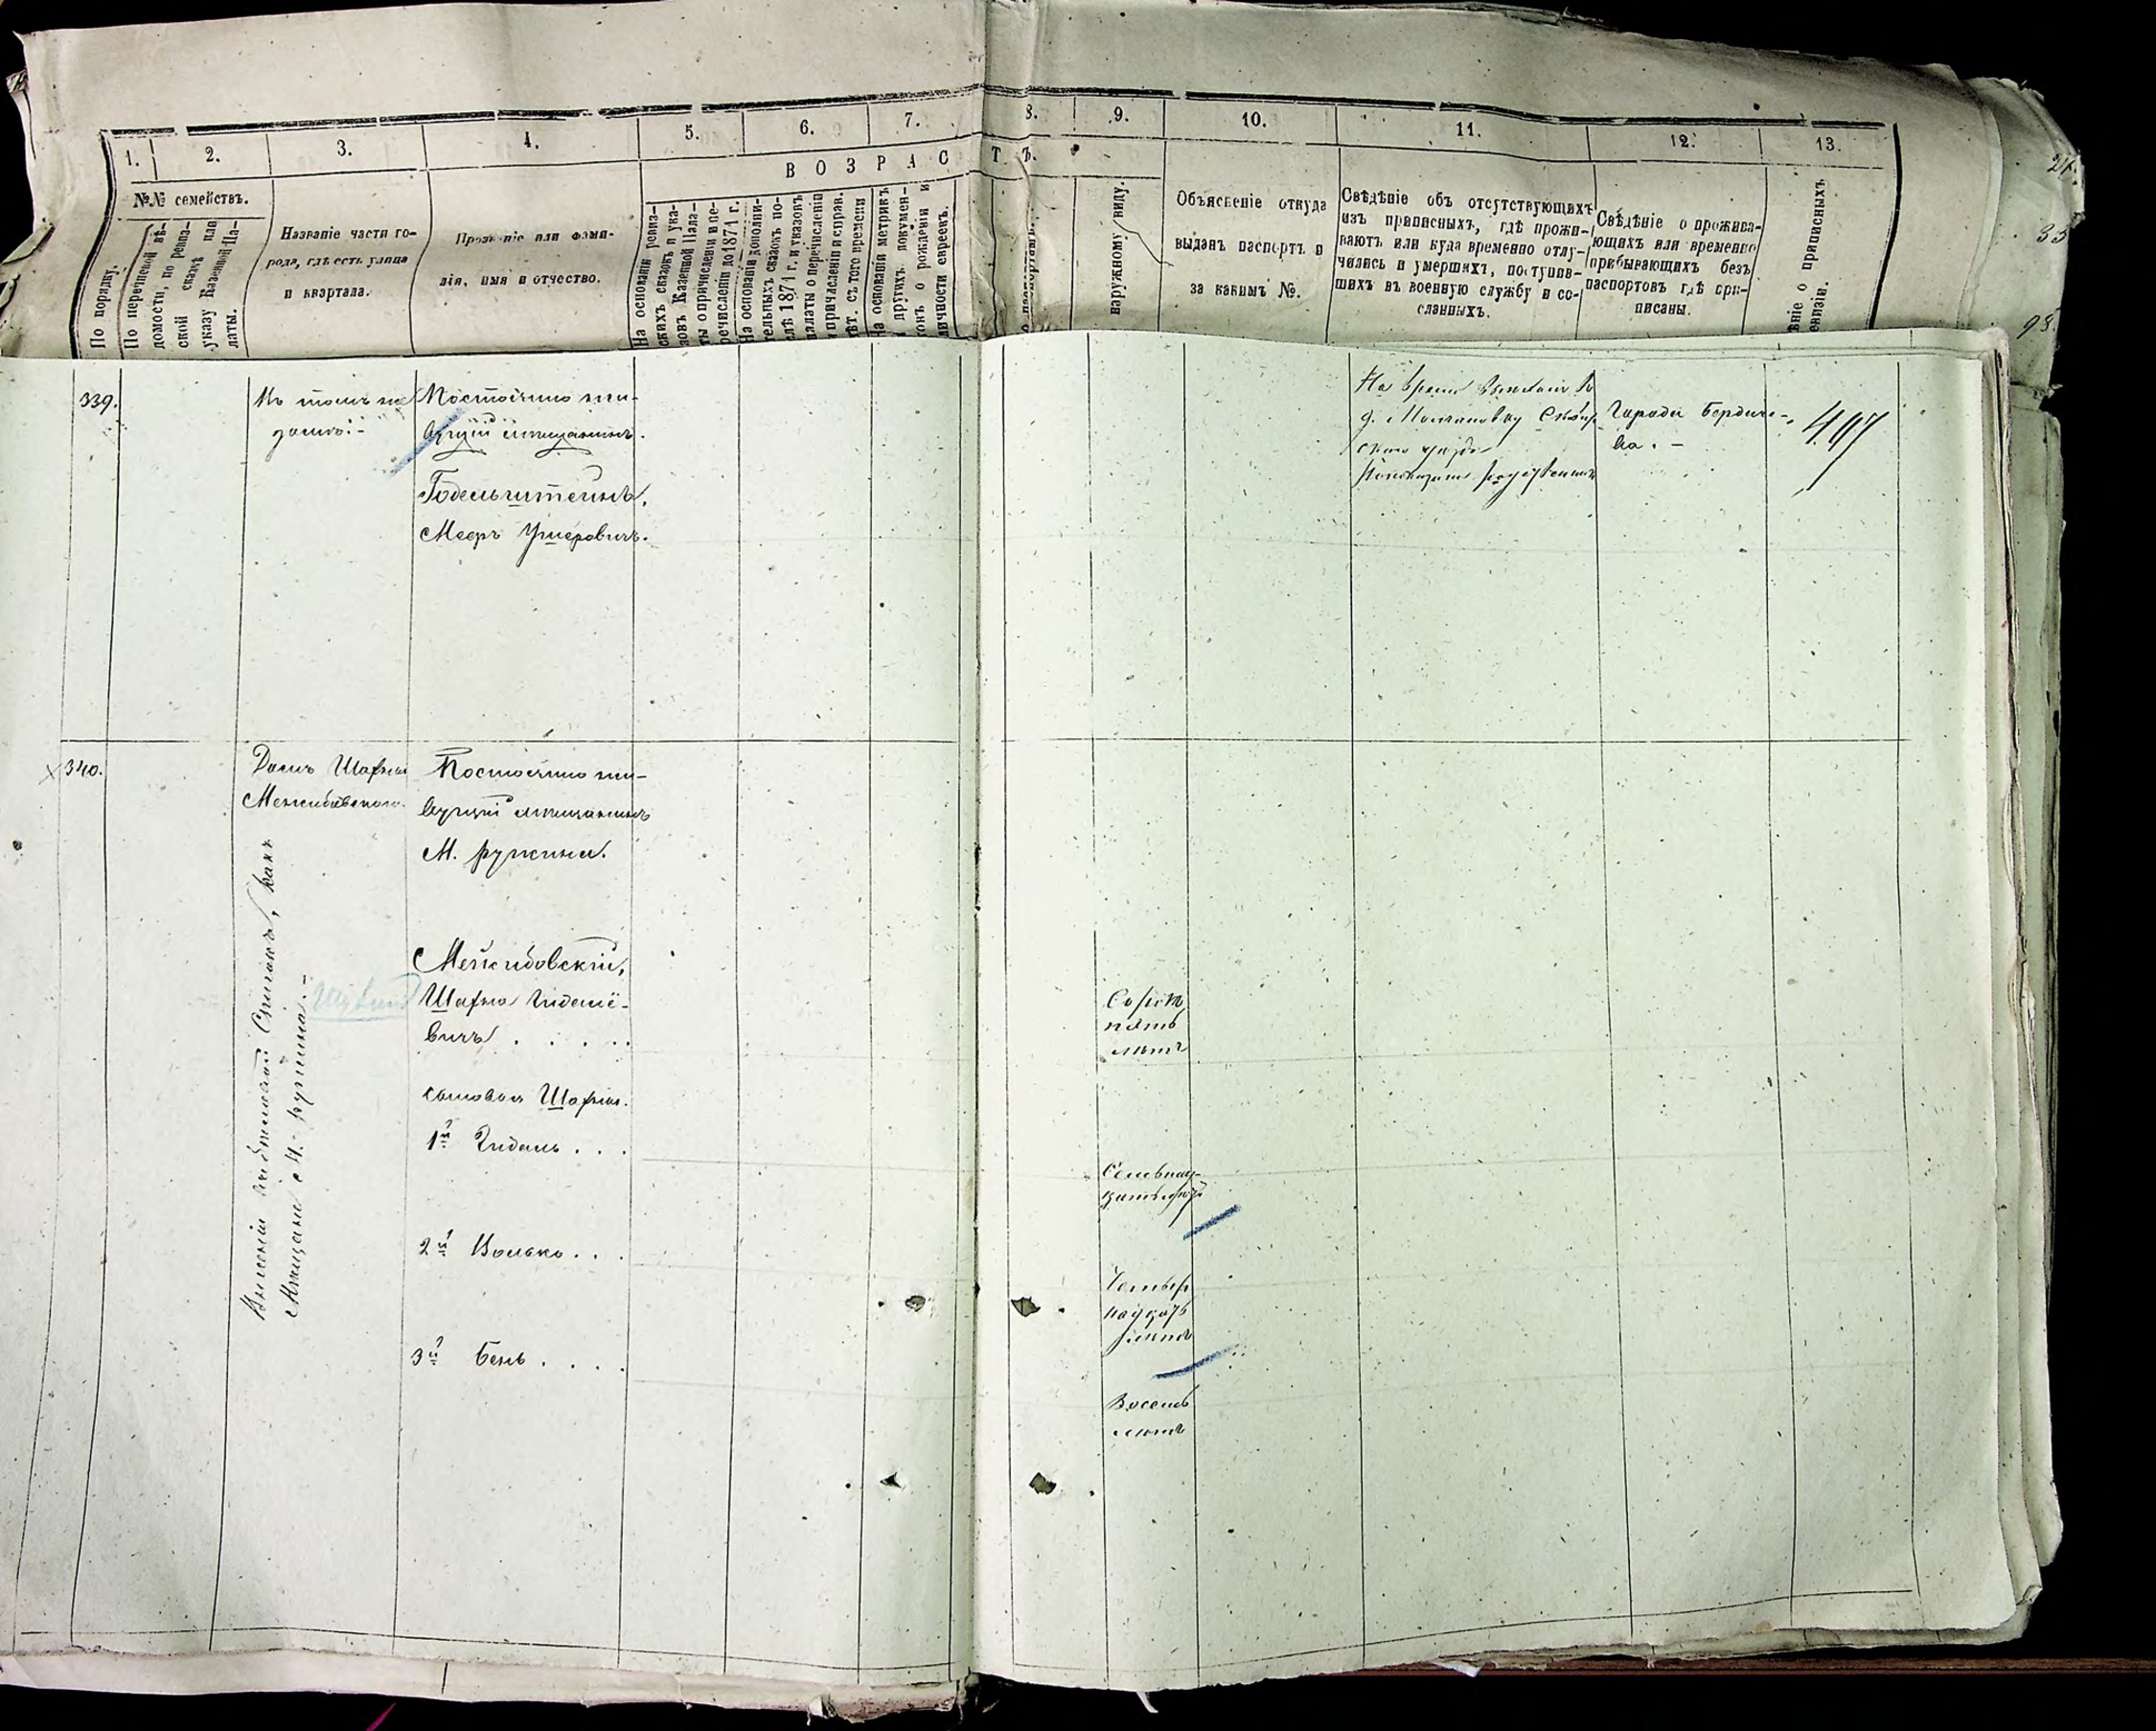 1.
2.
3.
4.
5.
6.
7.
8.
9.
10.
11.
12.
13.
ВОЗРАСТЪ.
№№ семействъ.
По порядку.
По перечневой вѣ-
домости, по ревиз-
ской сказкѣ или
указу Казенной Па-
латы.
Названіе части го-
рода, гдѣ есть улица
и квартала.
Прозваніе или фами-
лія, имя и отчество.
На основаніи ревиз-
скихъ сказокъ и ука-
зовъ Казенной Пала-
ты о причисленіи и пе-
речисленіи до 1874 г.
На основаніи дополни-
тельныхъ сказокъ по-
слѣ 1874 г. и указовъ
палаты о перечисленіи
и причисленіи и справ.
лѣт. съ того времени
На основаніи метрикъ
и другихъ докумен-
товъ о рожденіи и
личности евреевъ.
наружному виду.
Объясненіе откуда
выданъ паспортъ и
за какимъ №.
Свѣдѣніе объ отсутствующихъ
изъ приписныхъ, гдѣ прожи-
ваютъ или куда временно отлу-
чились и умершихъ, поступив-
шихъ въ военную службу и со-
сланныхъ.
Свѣдѣніе о прожива-
ющихъ или временно
прибывающихъ безъ
паспортовъ гдѣ при-
писаны.
ніе о приписныхъ
евизіи.
339.
Въ томъ же
домѣ:-
Постоянно жи-
вущій мѣщанинъ.
Годельштейнъ,
Мееръ Ушеровичъ.
На время
д. Молчановку Сквир
скаго уѣзда
Города Бердиче-
ва. -
497
340.
Домъ Шафны
Межибовскаго
Постоянно жи-
вущій мѣщанинъ
М. Ружина.
Межибовскій,
Шафна Гиделіо-
вичъ . . . . .
сыновья Шафны.
1й Гидаль . . .
2й Волько . . .
3й Бень . . . .
Сорокъ
пять
лѣтъ
Семьнад-
цать лѣтъ
Четыр
надцать
лѣтъ
Восемь
лѣтъ
Мѣщане М. Ружина. -